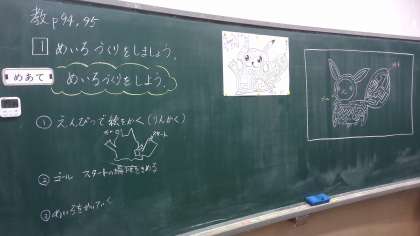 教 p94,95
1 めいろづくりをしましょう.
めあて
めいろづくりをしよう.
① えんぴつで絵をかく(りんかく)
ゴール
スタート
② ゴール スタートの場所をきめる
③ めいろをかいていく